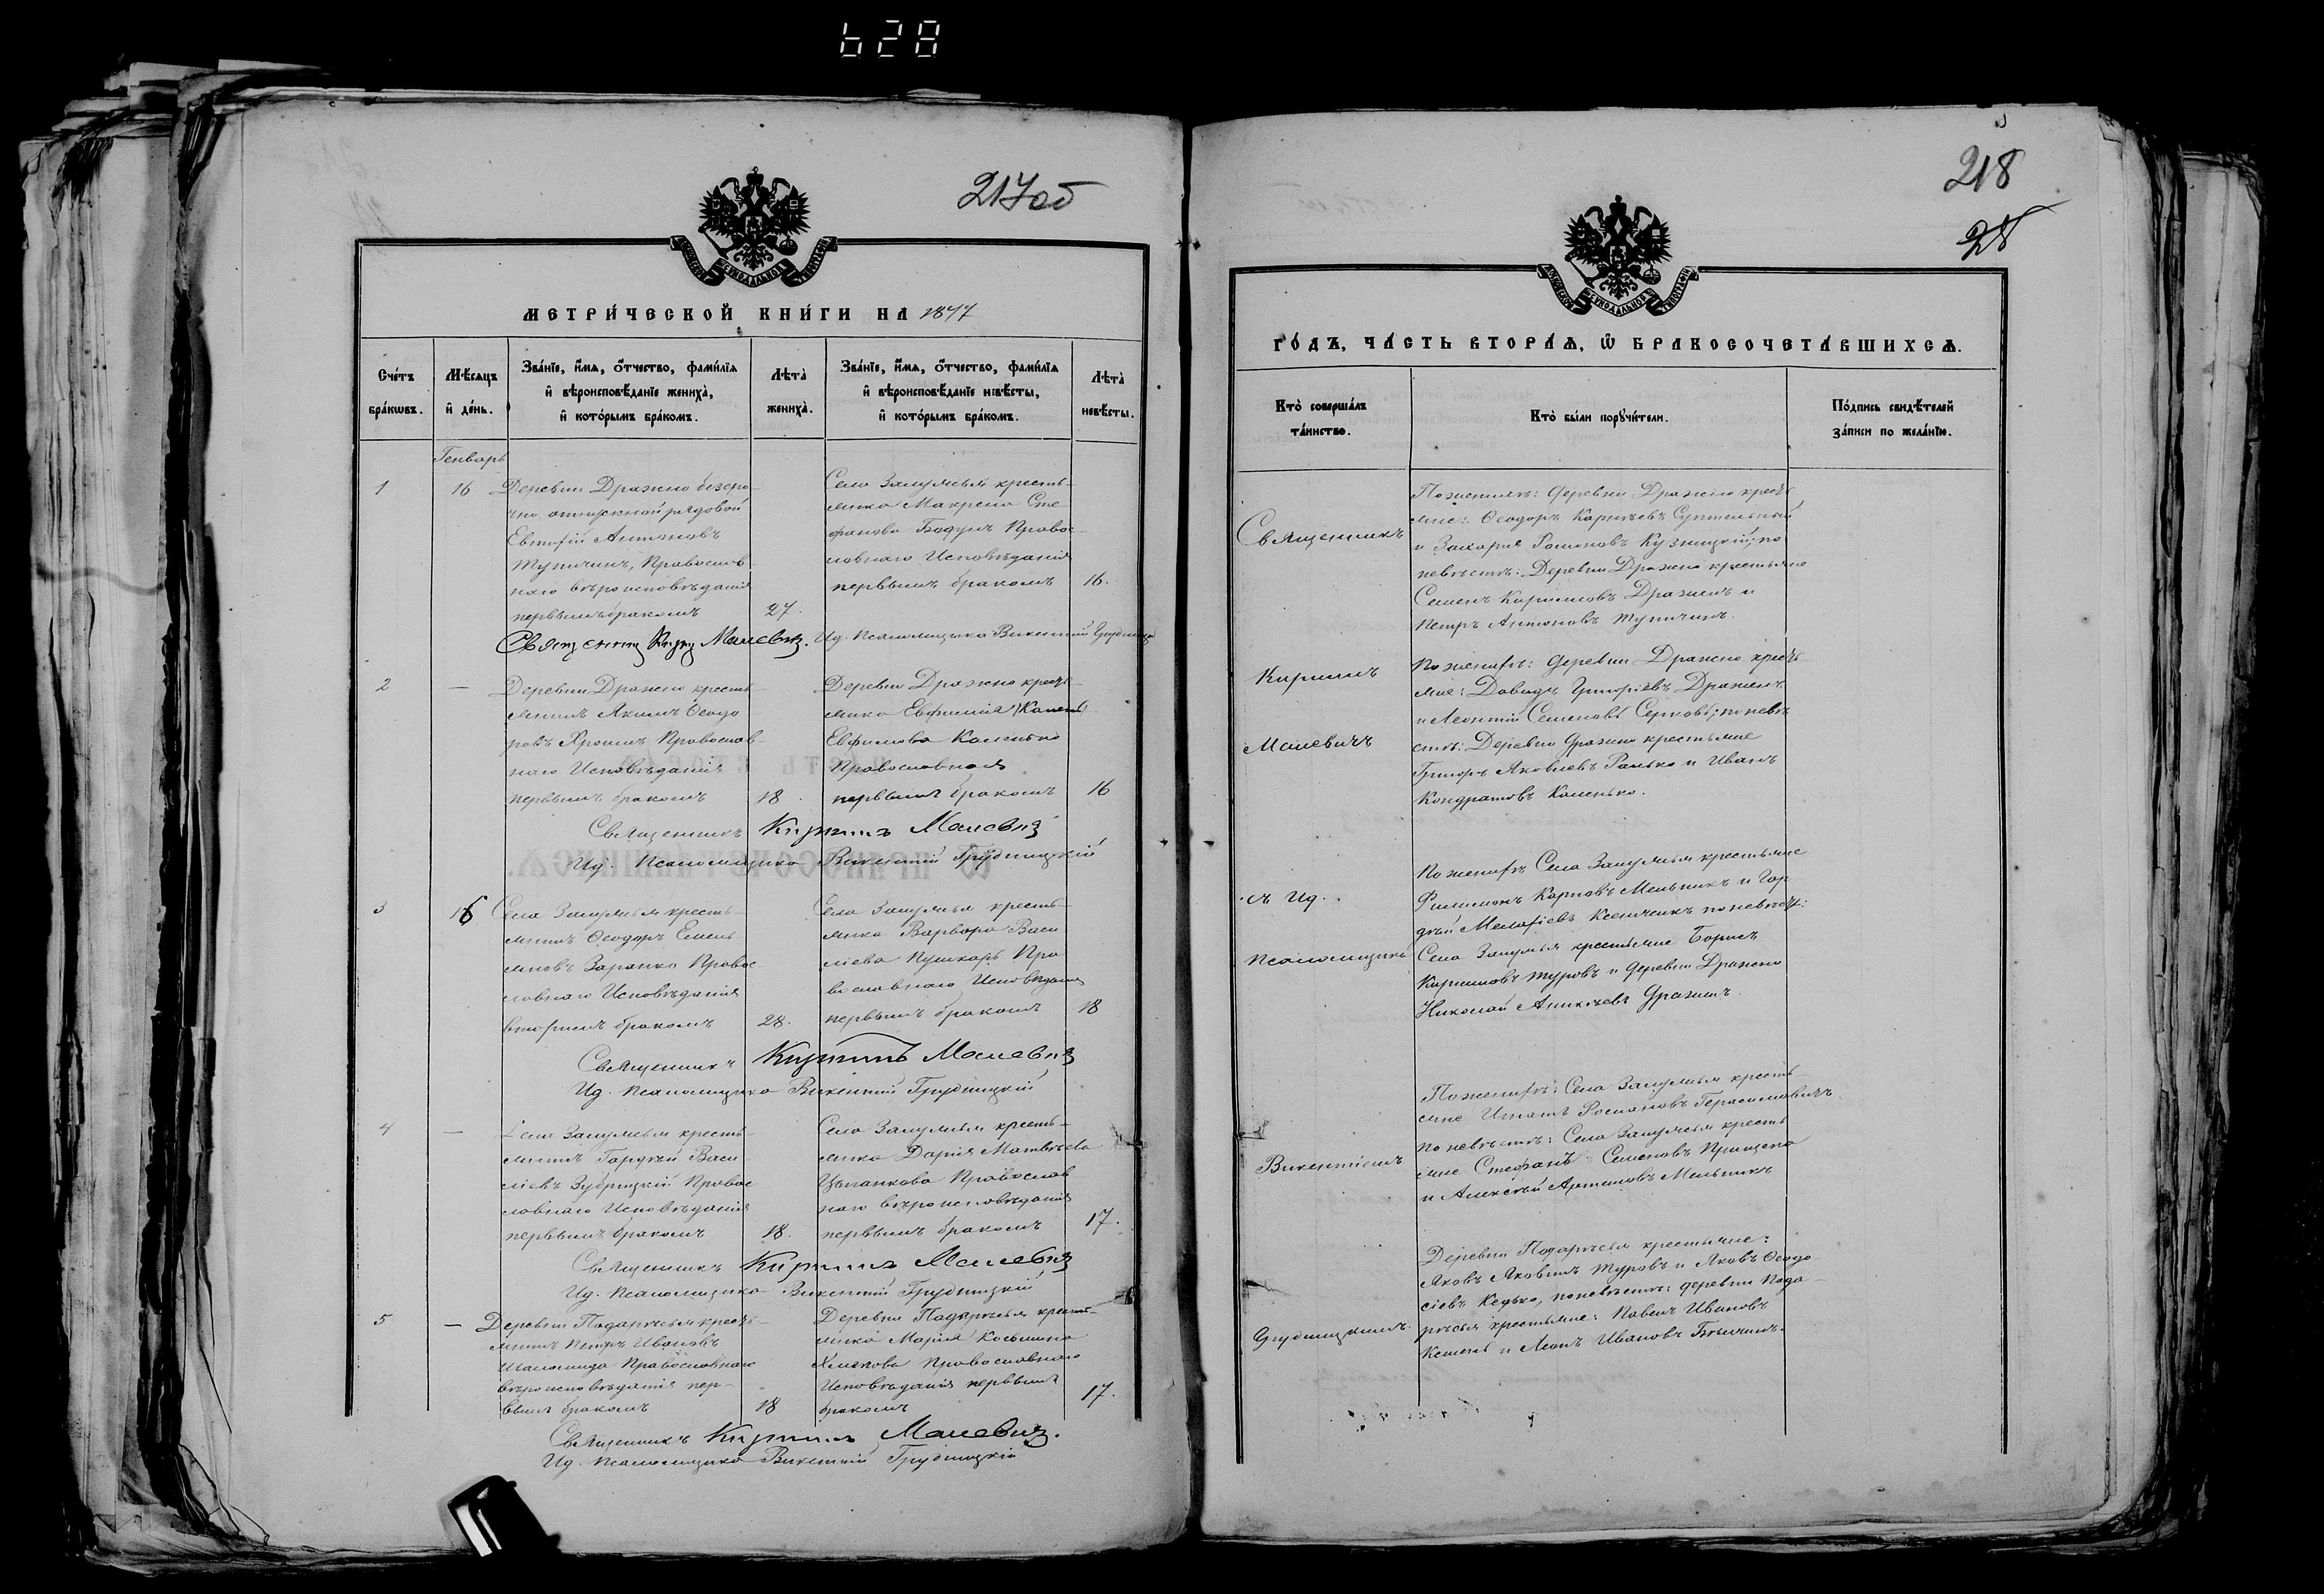 628
217об
МЕТРИЧЕСКОЙ КНИГИ НА 1877
Счетъ браковъ.
Мѣсяцъ и день.
Званіе, имя, отчество, фамилія и вѣроисповѣданіе жениха, и которымъ бракомъ.
Лѣта жениха.
Званіе, имя, отчество, фамилія и вѣроисповѣданіе невѣсты, и которымъ бракомъ.
Лѣта невѣсты.
Генварь
1
16.
Деревни Дражно безсро-
чно отпускной рядовой
Антоновъ
Тупичинъ, Православ
наго вѣроисповѣданія
первымъ бракомъ
27.
Села Залужья кресть-
янка Макрена Сте
фанова Бодунъ Правос-
лавнаго Исповѣданія
первымъ бракомъ
16.
Священник Маневич. Ид. Псаломщика Викентий Грудницкій
2
—
Деревни Дражно кресть-
янинъ Якимъ Ѳеодо
ровъ Хромъ Православ-
наго Исповѣданія
первымъ бракомъ
18.
Деревни Дражно кресть-
янка Евфимія
Евфимова Каменко
Православная
первымъ бракомъ
16
Священникъ Кириллъ Маневич
Ид. Псаломщика Викентий Грудницкій
3
16
Села Залужья кресть-
янинъ Ѳеодоръ Емель
яновъ Заранко Правос
лавнаго Исповѣданія
вторымъ бракомъ
28.
Села Залужья кресть-
янка Варвара Васи
лиева Пушкарь Пра
вославнаго Исповѣданія
первымъ бракомъ
18
Священникъ Кириллъ Маневич
Ид. Псаломщика Викентий Грудницкій
4
—
Села Залужья кресть-
янинъ Гордѣй Васи
ліевъ Зубрицкій Правос
лавнаго Исповѣданія
первымъ бракомъ
18.
Села Залужья кресть-
янка Дарія Матвѣева
Православ
наго вѣроисповѣданія
первымъ бракомъ
17.
Священникъ Кириллъ Маневич
Ид. Псаломщика Викентий Грудницкій
5
—
Деревни Подарѣсья кресть-
янинъ Петръ Ивановъ
Православнаго
вѣроисповѣданія пер-
вымъ бракомъ
18
Деревни Подарѣсья кресть-
янка Марія Косьмина
Православнаго
Исповѣданія первымъ
бракомъ
17.
Священникъ Кириллъ Маневич.
Ид. Псаломщика Викентий Грудницкій
218
28
ГОДЪ, ЧАСТЬ ВТОРАЯ, Ѿ БРАКОСОЧЕТАВШИХСЯ.
Кто совершалъ таинство.
Кто были поручители.
Подпись свидѣтелей записи по желанію.
Священникъ
Кириллъ
Маневичъ
съ Ид.
Псаломщика
Викентіемъ
Грудницкимъ.
По женихѣ: деревни Дражно кресть
яне: Ѳеодоръ Карнѣевъ
и Захарія Романовъ Кузницкій; по
невѣстѣ: Деревни Дражно крестьяне
Семенъ Кирилловъ Дражинъ и
Петръ Антоновъ Тупичинъ.
По женихѣ: деревни Дражно кресть-
яне: Давидъ Григорьевъ Дражинъ
и Леонтій Семеновъ Серковъ; по невѣ
стѣ: Деревни Дражно крестьяне
Григоръ Яковлевъ Ранько и Иванъ
Кондратовъ Каменко.
По женихѣ Села Залужья крестьяне
Филимонъ Карповъ Мельникъ и Гор
дѣй по невѣстѣ:
Села Залужья крестьяне Борисъ
Кирилловъ Туровъ и деревни Дражно
Николай Дражинъ.
По женихѣ: Села Залужья кресть-
яне Игнатъ Романовъ Герасимовичъ
по невѣстѣ: Села Залужья кресть
яне Стефанъ Семеновъ Прищепа
и Алексѣй Артемовъ Мельникъ
Деревни Подарѣсья крестьяне:
Яковъ Яковлевъ Туровъ и Яковъ Ѳеодо
сіевъ Кедько, по невѣстѣ: деревни Пода-
рѣсья крестьяне: Павелъ Ивановъ
и Леонъ Ивановъ